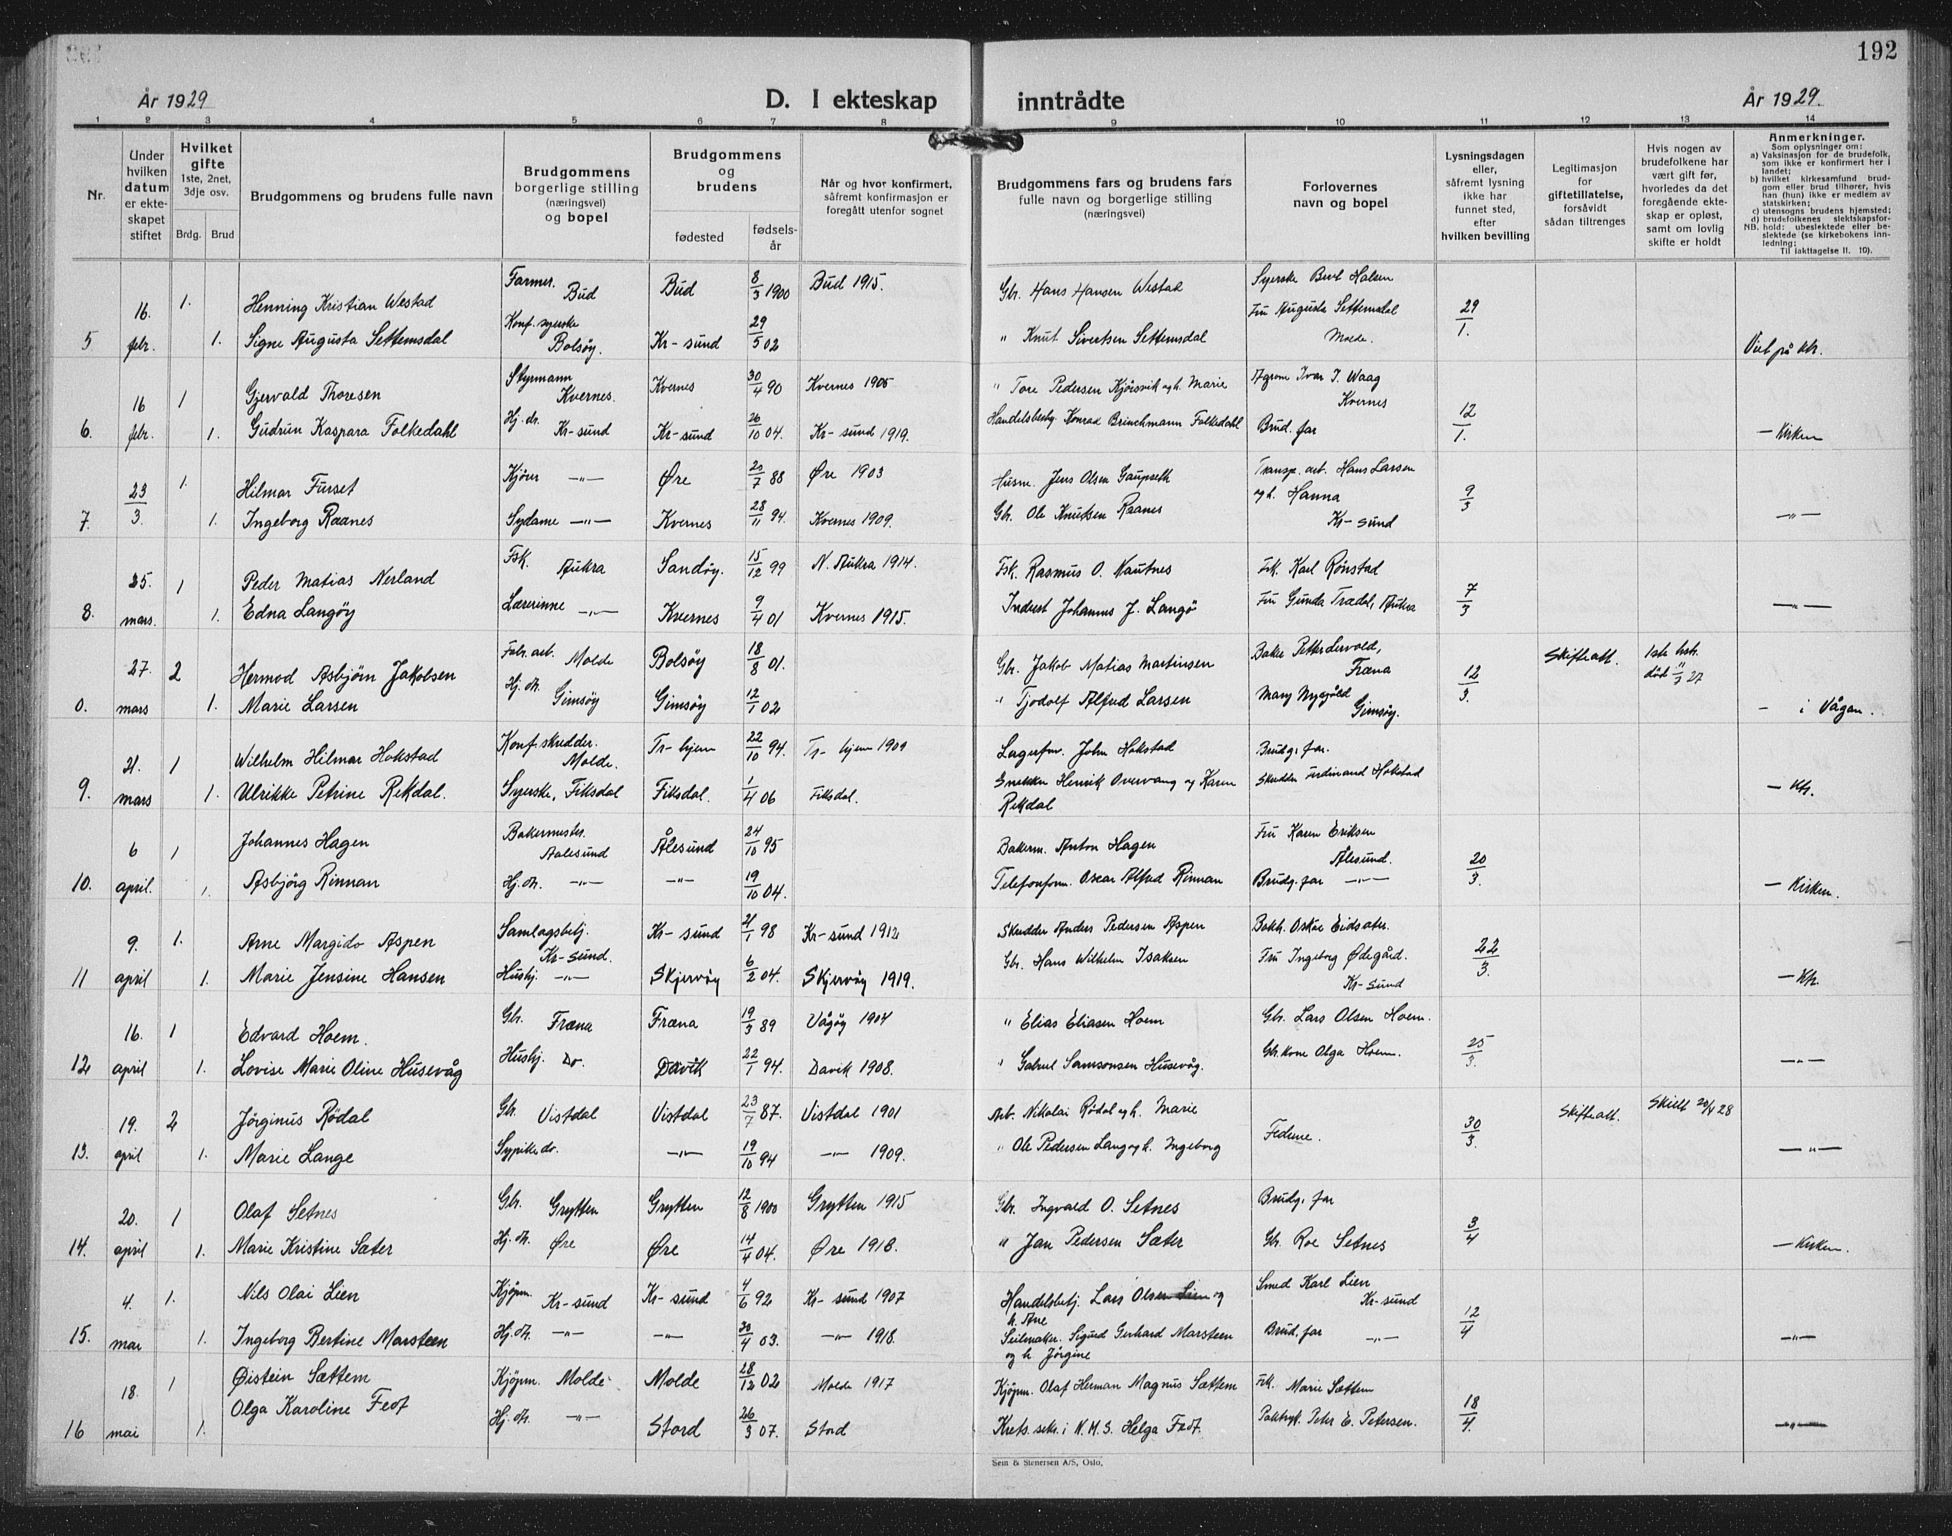 192
År 1929
D. I ekteskap inntrådte
År 1929.
1 2 3 4 5 6 7 8 9 10 11 12 13 14
Nr.
Under hvilken datum er ekteskapet stiftet
Hvilket gifte
1ste, 2net, 3dje osv.
Brdg. Brud
Brudgommens og brudens fulle navn
Brudgommens borgerlige stilling (næringsvei) og bopel
Brudgommens og brudens
fødested
fødselsår
Når og hvor konfirmert, såfremt konfirmasjon er foregått utenfor sognet
Brudgommens fars og brudens fars fulle navn og borgerlige stilling (næringsvei)
Forlovernes navn og bopel
Lysningsdagen eller, såfremt lysning ikke har funnet sted, efter hvilken bevilling
Legitimasjon for giftetillatelse, forsåvidt sådan tiltrenges
Hvis nogen av brudefolkene har vært gift før, hvorledes da det foregående ekteskap er opløst, samt om lovlig skifte er holdt
Anmerkninger.
Som oplysninger om:
a) Vaksinasjon for de brudefolk, som ikke er konfirmert her i landet;
b) hvilket kirkesamfund brudgom eller brud tilhører, hvis han (hun) ikke er medlem av statskirken;
c) utensogns brudens hjemsted;
d) brudefolkenes slektskapsforhold: ubeslektede eller beslektede (se kirkebokens innledning;
NB.
Til iakttagelse II. 10).
16. 1. Henning Kristian Westad Farmer. Bud Bud 8/3 1900 Bud 1915. Gbr. Hans Hansen Westad Syerske Berit Halsen
5 febr. 1. Signe Augusta Settemsdal Konf. syerske Bolsøy. Kr-sund 29/5 02 " Knut Sivertsen Settemsdal Fru Augusta Settemsdal Molde. 29/1. Viet på ktr.
16 1 Gjervald Thoresen Styrmann Kvernes. Kvernes 30/4 90 Kvernes 1905 " Tore Pedersen Kjørsvik og h. Marie Agrom Ivar I. Waag Kvernes
6. febr. 1. Gudrun Kaspara Folkedahl Hj. dr. Kr-sund Kr-sund 26/10 04. Kr-sund 1919. Handelsbesty. Konrad Brinchmann Folkedahl Brud. far 12/1. — Kirken
23/3. 1. Hilmar Furset Kjører —"— Øre 20/7 88 Øre 1903 Husm. Jens Olsen Gaupseth Transp. arb. Hans Larsen
7. 1. Ingeborg Raanes Sydame —"— Kvernes 28/11 94. Kvernes 1909. Gbr. Ole Knudsen Raanes og h. Hanna Kr-sund 9/3 —"—
25. 1 Peder Matias Nerland Fsk. Aukra Sandøy. 15/12 99 N. Aukra 1914. Fsk. Rasmus O. Nautnes Frk. Karl Rønstad
8. mars. 1. Edna Langøy Lærerinne —"— Kvernes 9/4 01 Kvernes 1915. Inderst Johannes J. Langø Fru Gunda Trædal, Aukra 7/3 —"—
27. 2 Hermod Asbjørn Jakobsen Fabr. arb. Molde Bolsøy 18/8 01. Gbr. Jakob Matias Martinsen Baker Petter Dervold, Fræna Skifteatt. 1ste hstr. død 11/3 27
0. mars 1. Marie Larsen Hj. dtr. Gimsøy Gimsøy 12/1 02 " Tjodolf Alfred Larsen Mary Nygjøld Gimsøy. 12/3. — i Vågan.
21. 1 Wilhelm Hilmar Hokstad Konf. skredder. Molde. Tr-hjem 22/10 94. Tr-hjem 1909 Lagerfm. John Hokstad Brudg. far.
9. mars 1. Ulrikke Petrine Rekdal. Syerske, Fiksdal Fiksdal. 1/4 06 Fiksdal. Snekker Henrik Overvang og Karen Rekdal Skredder Ferdinand Hokstad — Ktr.
6 1 Johannes Hagen Bakermester. Aalesund Ålesund 24/10 95 Bakerm. Anton Hagen Fru Karen Eriksen Ålesund.
10. april. 1. Asbjørg Rinnan Hj. dtr. —"— —"— 19/10 04. Telefonform. Oscar Alfred Rinnan Brudg. far —"— 20/3. — Kirken.
9. 1. Arne Margido Aspen Samlagsbetj. Kr-sund. Kr-sund 21/1 98 Kr-sund 1912 Skredder Anders Pedersen Aspen Bokh. Oskar Eidsæter.
11 april 1. Marie Jensine Hansen Hushj. —"— Skjervøy 6/2 04. Skjervøy 1919. Gbr. Hans Wilhelm Isaksen Fru Ingeborg Ødegård. Kr-sund 22/3. — Ktr.
16. 1 Edvard Hoem. Gbr. Fræna Fræna 19/3 89 Vågøy 1904 " Elias Eliasen Hoem Gbr. Lars Olsen Hoem.
12 april 1. Lovise Marie Oline Husevåg Hushj. Do. Davik 22/1 94. Davik 1908. " Gabriel Samsonsen Husevåg. Gbr. kone Olga Hoem. 25/3. —"—
19. 2 Jørginus Rødal Gbr. Vistdal Vistdal 23/7 87. Vistdal 1901 Arb. Nikolai Rødal og h. Marie Skifteatt. Skilt 20/4 28
13. april 1. Marie Lange Sypike do. —"— 19/10 94 —"— 1909. " Ole Pedersen Lange og h. Ingeborg Fedrene. 30/3. —"—
20. 1 Olaf Setnes Gbr. Grytten Grytten 12/8 1900 Grytten 1915 Gbr. Ingvald O. Setnes Brudg. far
14. april 1. Marie Kristine Sæter Hj. dtr. Øre Øre 14/4 04. Øre 1918. " Jan Pedersen Sæter Gbr. Roe Setnes 3/4 — Kirken.
4. 1. Nils Olai Lien Kjøpm. Kr-sund Kr-sund 4/6 92 Kr-sund 1907 Handelsbetj. Lars Olsen Lien og h. Ane Smed Karl Lien Kr-sund
15. mai 1. Ingeborg Bertine Marsteen Hj. dtr. —"— —"— 30/4 03. —"— 1918. Seilmaker. Sigurd Gerhard Marsteen og h Jørgine Brud. far —"— 12/4 —"—
18. 1 Øistein Sættem Kjøpm. Molde Molde 28/12 02 Molde 1917 Kjøpm. Olaf Herman Magnus Sættem Frk. Marie Sættem
16 mai 1. Olga Karoline Feot Hj. dtr. —"— Stord 26/3 07. Stord Krets. sekr. i N.M.S. Helga Feot. Peter E. Petersen. 18/4. —"—
Sem & Stenersen A/S, Oslo.